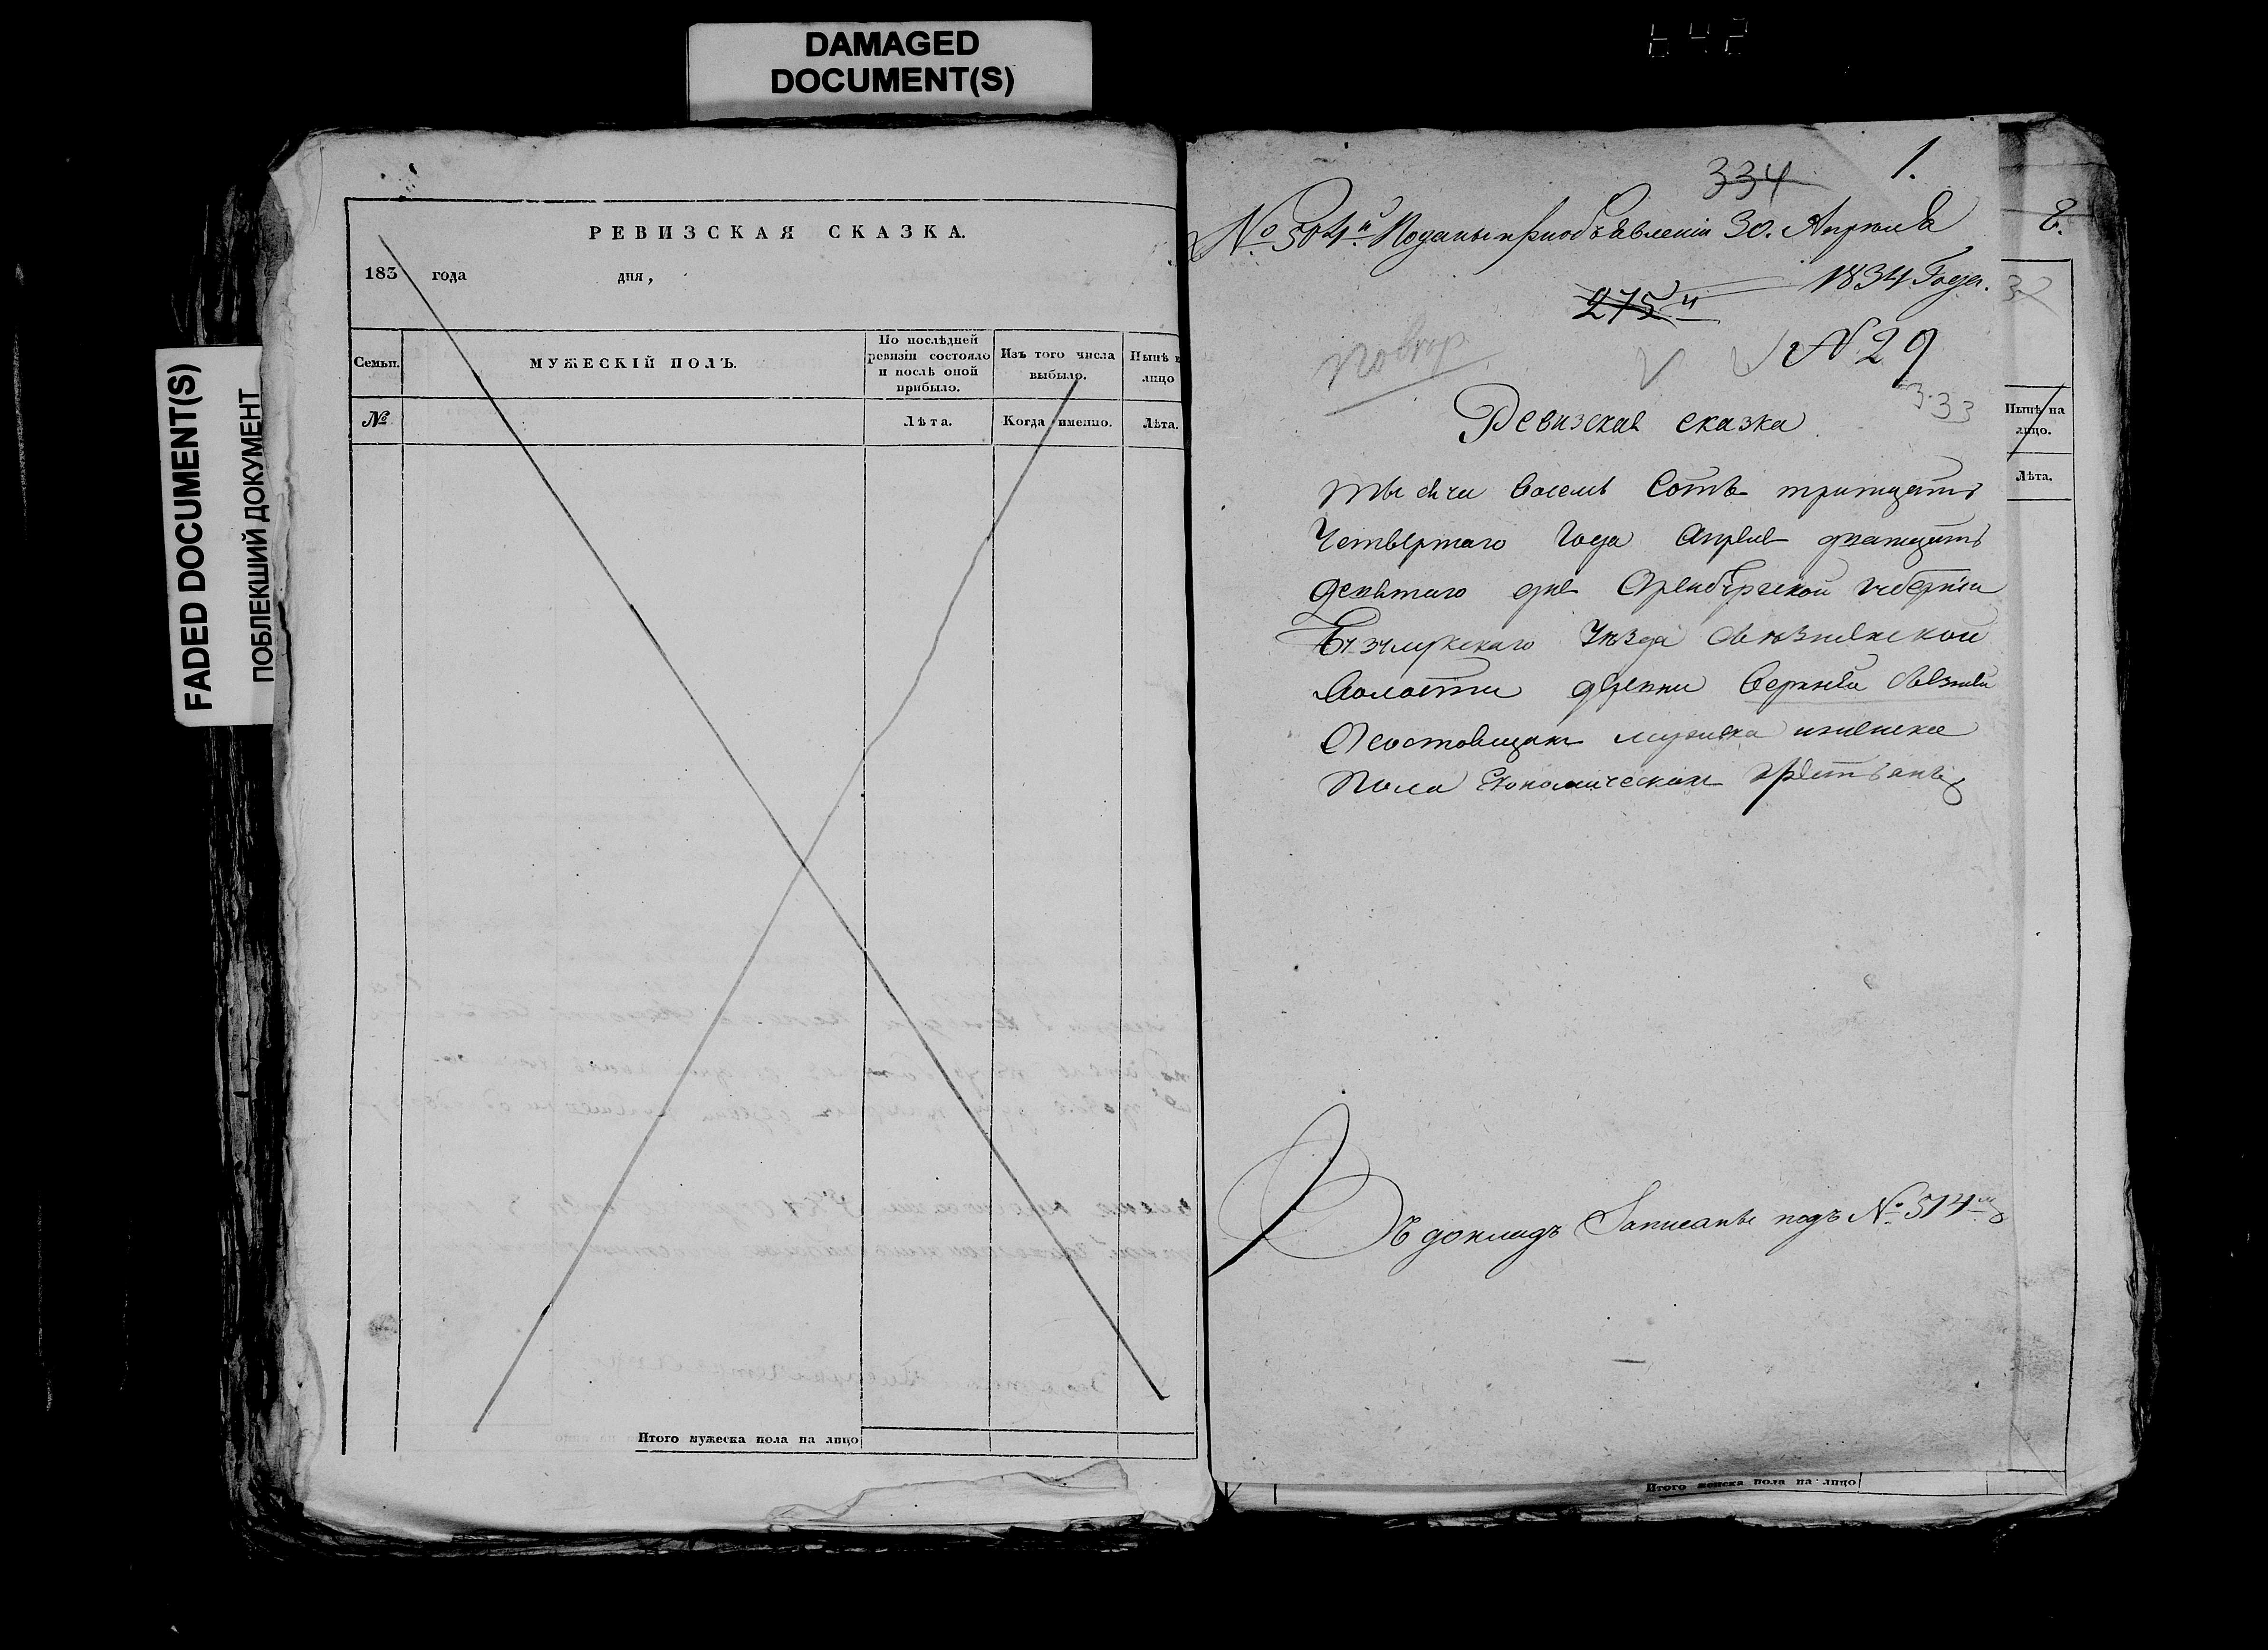 DAMAGED
DOCUMENT(S)
FADED DOCUMENT(S)
ПОБЛЕКШИЙ ДОКУМЕНТ
642
РЕВИЗСКАЯ СКАЗКА.
183 года дня,
Семьи.
МУЖЕСКІЙ ПОЛЪ.
По послѣдней
ревизіи состояло
и послѣ оной
прибыло.
Изъ того числа
выбыло.
Нынѣ
лицо
№
Лѣта.
Когда именно.
Лѣта.
Итого мужеска пола на лицо
334
1.
№ 504й Поданы при объявленіи 30. Апреля
1834 Года.
275й
повтор.
№ 29
333
Ревизская сказка
тысяча восемь сотъ тритцать
Четвертаго Года Апреля дватцать
девятаго дня Оренбургской губерніи
Бузулукскаго Уѣзда
Волости деревни Верхней
О состоящихъ мужеска и женска
Пола Економическихъ крестьянъ
Въ докладъ Записаны подъ № 514м
8.
Нынѣ на
лицо.
Лѣта.
Итого женска пола на лицо